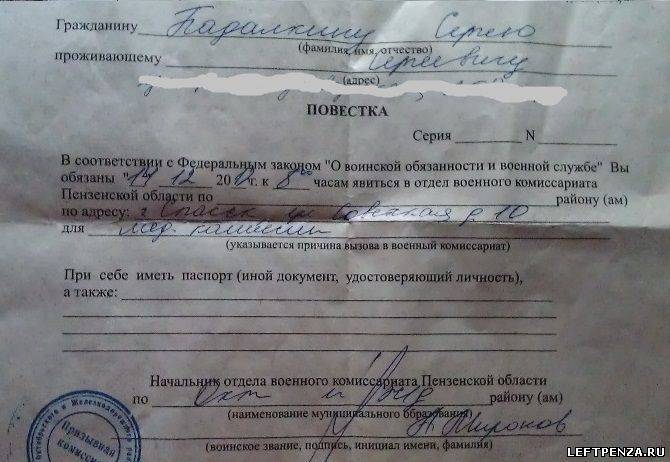 Гражданину Падалкину Сергею
(фамилия, имя, отчество)
проживающему Сергеевичу
(адрес)
ПОВЕСТКА
Серия ________ N ________
В соответствии с Федеральным законом "О воинской обязанности и военной службе" Вы
обязаны "14" 12 2012г. к 8 00 часам явиться в отдел военного комиссариата
Пензенской области по ________ району (ам)
по адресу: г. Спасск ул Советская д. 10
для мед. комиссии
(указывается причина вызова в военный комиссариат)
При себе иметь паспорт (иной документ, удостоверяющий личность),
а также:
Начальник отдела военного комиссариата Пензенской области
по Окт и Жел району (ам)
(наименование муниципального образования)
(воинское звание, подпись, инициал имени, фамилия)
Октябрьского и Железнодорожного
Призывная комиссия
LEFTPENZA.RU